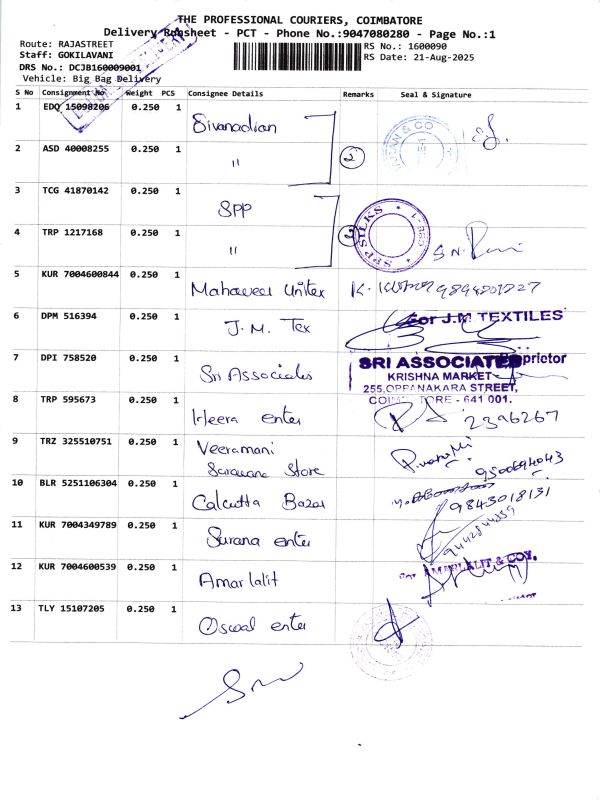 THE PROFESSIONAL COURIERS, COIMBATORE
Delivery Runsheet - PCT - Phone No.:9047080280 - Page No.:1
Route: RAJASTREET
Staff: GOKILAVANI
DRS No.: DCJB160009001
Vehicle: Big Bag Delivery
RS No.: 1600090
RS Date: 21-Aug-2025
S No Consignment No Weight PCS Consignee Details Remarks Seal & Signature
1 EDQ 15098206 0.250 1 Sivanadian
2 ASD 40008255 0.250 1 " 2
3 TCG 41870142 0.250 1 SPP
SPP SILKS
4 TRP 1217168 0.250 1 " 2
5 KUR 7004600844 0.250 1 Mahaveer Unitex
6 DPM 516394 0.250 1 J.M. Tex
For J.M TEXTILES
Proprietor
7 DPI 758520 0.250 1 Sri Associates
SRI ASSOCIATES
KRISHNA MARKET
255, OPPANAKARA STREET,
COIMBATORE - 641 001.
8 TRP 595673 0.250 1 Heera enter 2396267
9 TRZ 325510751 0.250 1 Veeramani
Saravana Store 9500694043
10 BLR 5251106304 0.250 1 Calcutta Bazar 9843018131
11 KUR 7004349789 0.250 1 Surana enter
12 KUR 7004600539 0.250 1 Amarlalit
For AMARLALIT & COY.
13 TLY 15107205 0.250 1 Oswal enter